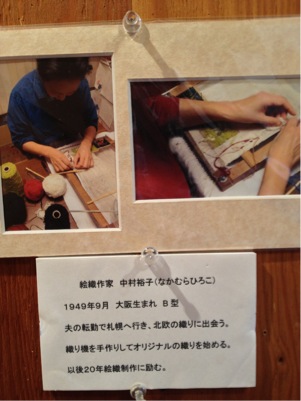 絵織作家 中村裕子(なかむらひろこ)
1949年9月 大阪生まれ B型
夫の転動で札幌へ行き、北欧の織りに出会う。
織り機を手作りしてオリジナルの織りを始める。
以後20年絵織制作に励む。